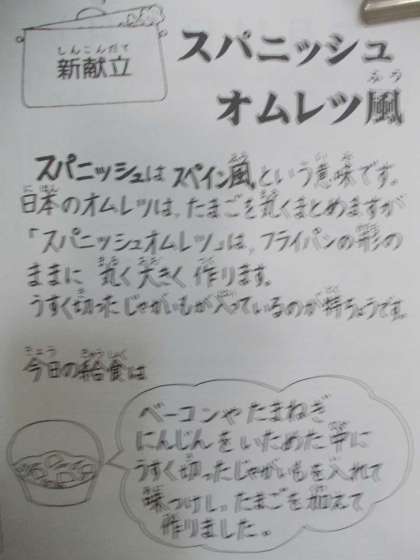 新献立
スパニッシュ
オムレツ風
スパニッシュはスペイン風という意味です。
日本のオムレツは、たまごを丸くまとめますが
「スパニッシュオムレツ」は、フライパンの形の
ままに 丸く大きく 作ります。
うすく切ったじゃがいもが入っているのが特ちょうです。
今日の給食は
ベーコンやたまねぎ
にんじんをいためた中に
うすく切ったじゃがいもを入れて
味つけし、たまごを加えて
作りました。